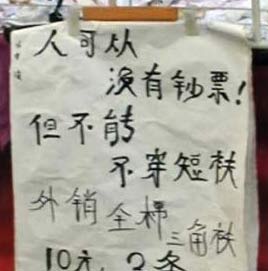 人可以
没有钞票！
但不能
不穿短裤
外销全棉
三角裤
10元 3条